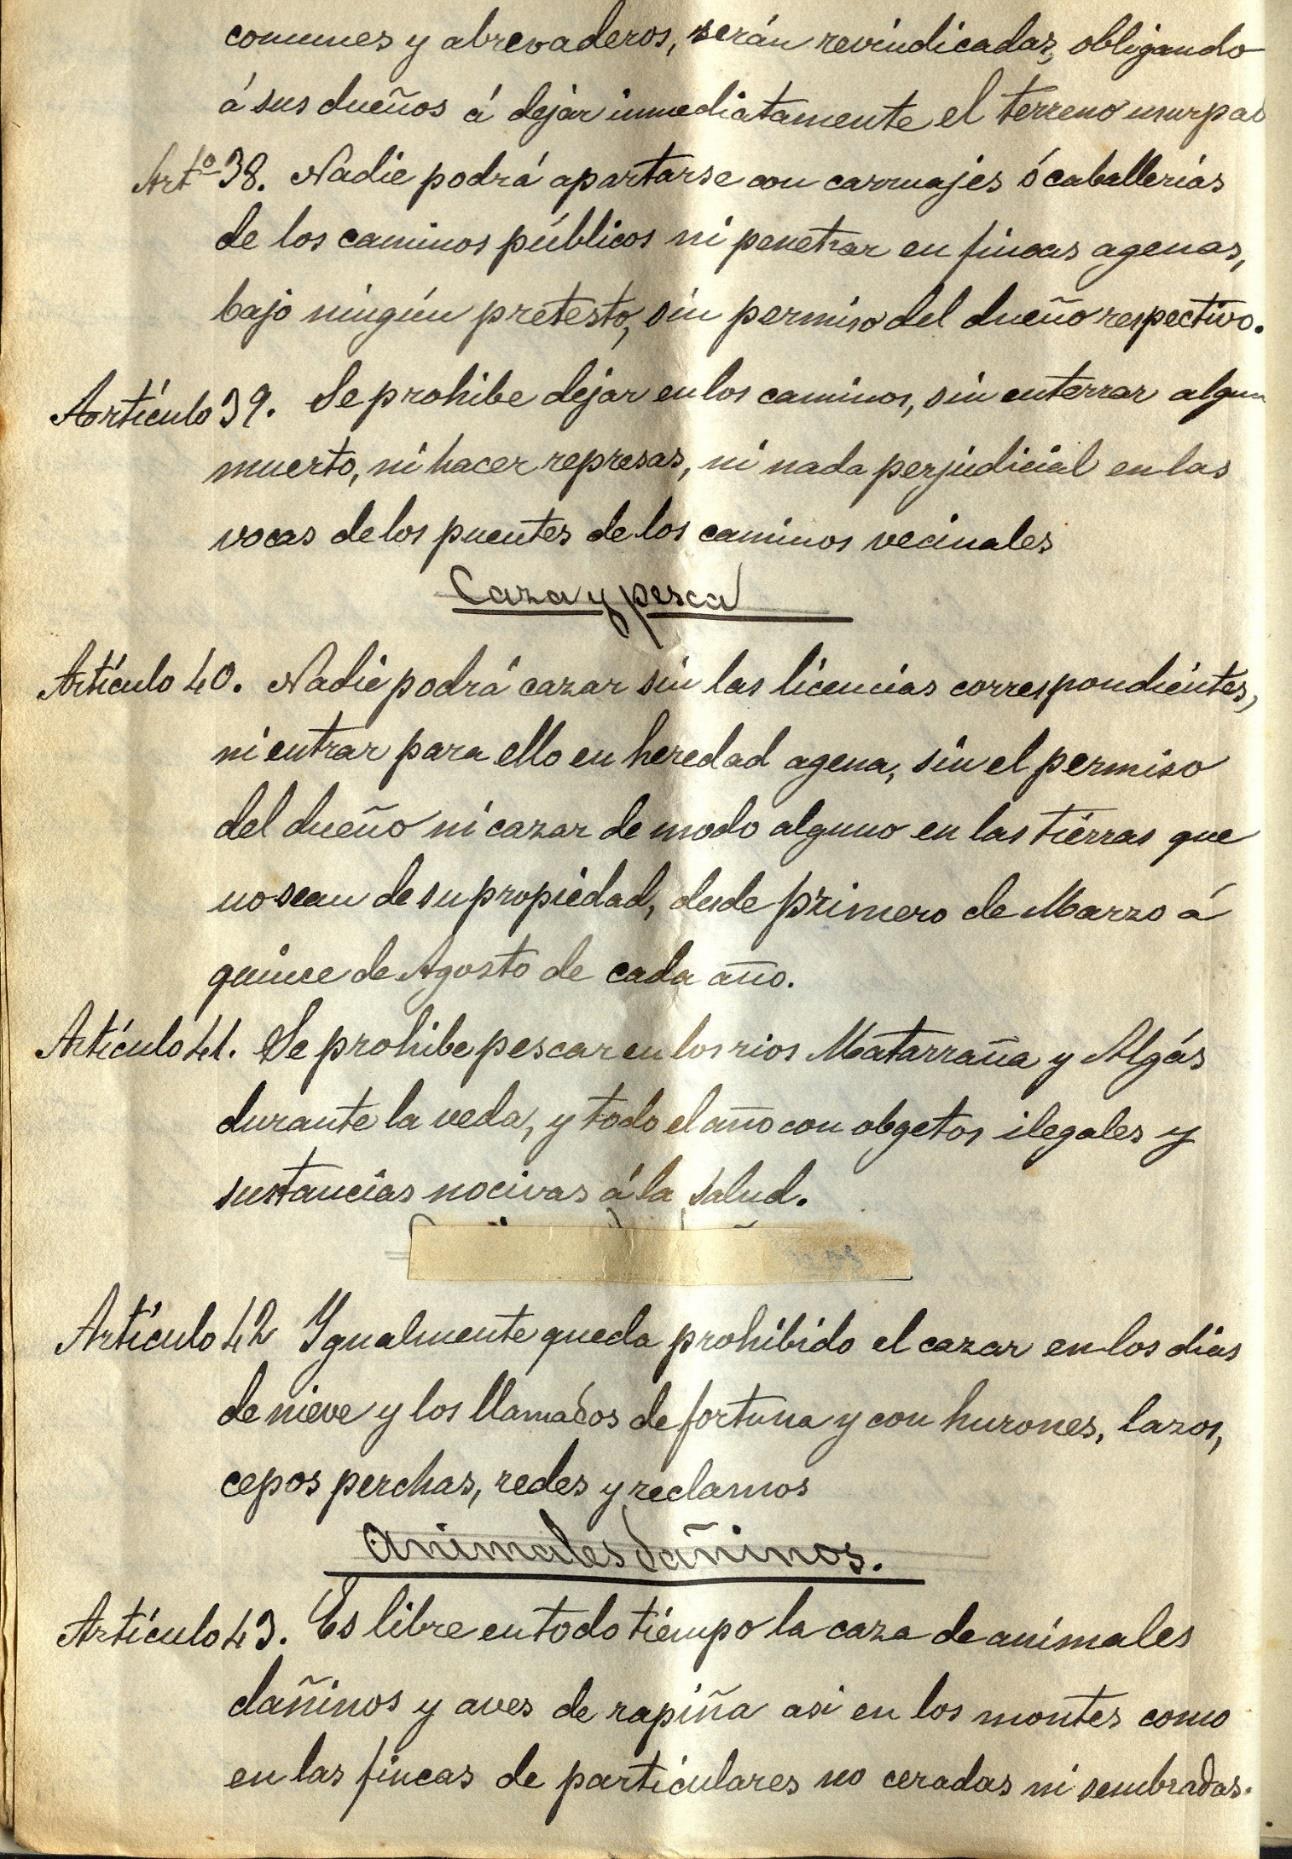 comunes y abrevaderos, serán revindicadas, obligando
á sus dueños á dejar inmediatamente el terreno usurpad
Artº 38. Nadie podrá apartarse con carruajes ó caballerías
de los caminos públicos ni penetrar en fincas agenas,
bajo ningún pretesto, sin permiso del dueño respectivo.
Aortículo 39. Se prohibe dejar en los caminos, sin enterrar algun
muerto, ni hacer represas, ni nada perjudicial en las
vocas de los puentes de los caminos vecinales
Caza y pesca
Artículo 40. Nadie podrá cazar sin las licencias correspondientes,
ni entrar para ello en heredad agena, sin el permiso
del dueño ni cazar de modo alguno en las tierras que
no sean de su propiedad, desde primero de Marzo á
quince de Agosto de cada año.
Artículo 41. Se prohibe pescar en los rios Matarraña y Algás
durante la veda, y todo el año con obgetos ilegales y
sustancias nocivas á la salud.
Artículo 42 Ygualmente queda prohibido el cazar en los dias
de nieve y los llamados de fortuna y con hurones, lazos,
cepos perchas, redes y reclamos
Animales dañinos.
Artículo 43. Es libre en todo tiempo la caza de animales
dañinos y aves de rapiña asi en los montes como
en las fincas de particulares no ceradas ni sembradas.